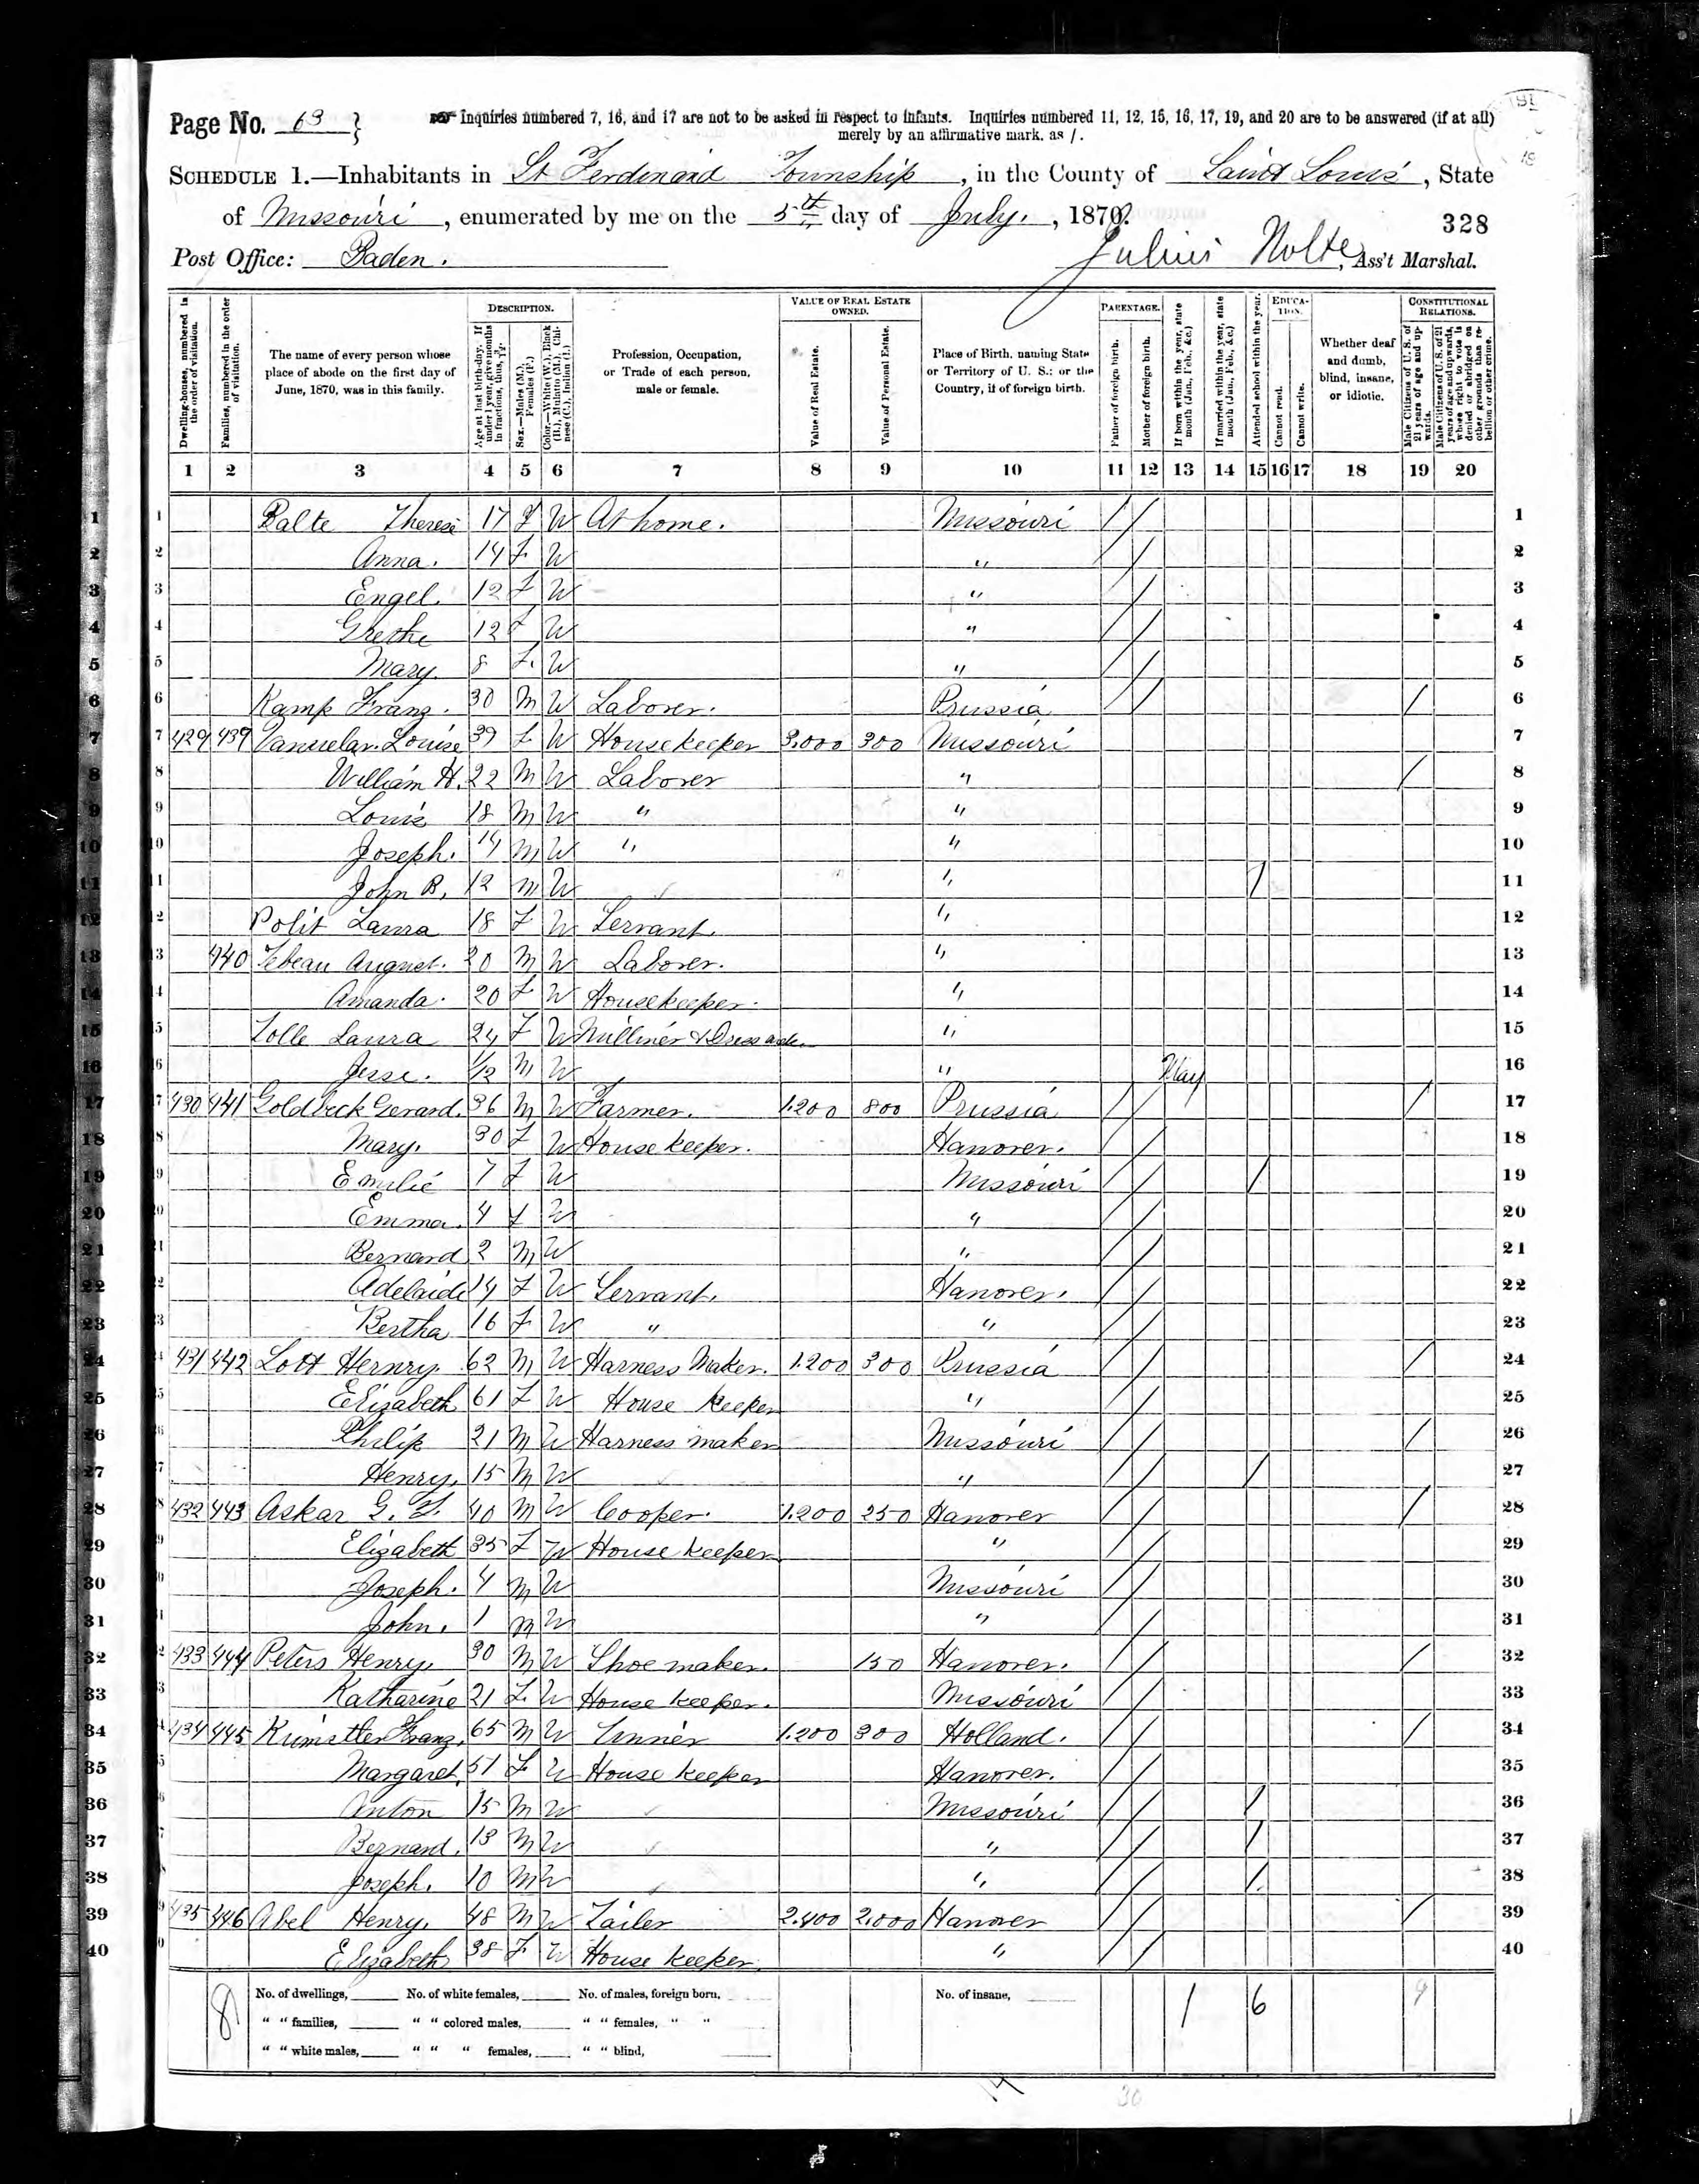 Page No. 63 } Inquiries numbered 7, 16, and 17 are not to be asked in respect to infants. Inquiries numbered 11, 12, 15, 16, 17, 19, and 20 are to be answered (if at all)
merely by an affirmative mark. as /.
SCHEDULE 1.—Inhabitants in St Ferdinand Township, in the County of Saint Louis, State
of Missouri, enumerated by me on the 5th day of July., 1870.
328
Post Office: Baden. Julius Nolte, Ass't Marshal.
Dwelling-houses, numbered in the order of visitation.
Families, numbered in the order of visitation.
The name of every person whose place of abode on the first day of June, 1870, was in this family.
DESCRIPTION.
Age at last birth-day. If under 1 year, give months in fractions, thus, 3/12.
Sex.—Males (M.), Females (F.)
Color.—White (W.), Black (B.), Mulatto (M.), Chinese (C.), Indian (I.)
Profession, Occupation, or Trade of each person, male or female.
VALUE OF REAL ESTATE OWNED.
Value of Real Estate.
Value of Personal Estate.
Place of Birth, naming State or Territory of U. S.; or the Country, if of foreign birth.
PARENTAGE.
Father of foreign birth.
Mother of foreign birth.
If born within the year, state month (Jan., Feb., &c.)
If married within the year, state month (Jan., Feb., &c.)
Attended school within the year.
EDUCATION.
Cannot read.
Cannot write.
Whether deaf and dumb, blind, insane, or idiotic.
CONSTITUTIONAL RELATIONS.
Male Citizens of U. S. of 21 years of age and upwards.
Male Citizens of U. S. of 21 years of age and upwards, whose right to vote is denied or abridged on other grounds than rebellion or other crime.
1 2 3 4 5 6 7 8 9 10 11 12 13 14 15 16 17 18 19 20
1 Balte Therese 17 F W At home. Missouri / / 1
2 Anna. 14 F. W " / / 2
3 Engel. 12 F W " / / 3
4 Grethe 12 F W " / / 4
5 Mary. 8 F. W " / / 5
6 Kamp Franz. 30 M W Laborer. Prussia / / / 6
7 429 439 Louise 39 F W Housekeeper 3.000 300 Missouri 7
8 William H. 22 M W Laborer " / 8
9 Louis 18 M W " " 9
10 Joseph. 14 M W " " 10
11 John B. 12 M W " / 11
12 Polit Laura 18 F W Servant. " 12
13 440 Tebeau August. 20 M W Laborer. " 13
14 Amanda. 20 F W Housekeeper. " 14
15 Zolle Laura 24 F W Milliner & " 15
16 Jesse. 1/12 M W " May 16
17 430 441 Goldbeck Gerard. 36 M W Farmer. 1.200 800 Prussia / / / 17
18 Mary. 30 F W House keeper. Hanover. / / 18
19 Emilie 7 F W Missouri / / / 19
20 Emma. 4 F W " / / 20
21 Bernard 2 M W " / / 21
22 Adelaide 14 F W Servant. Hanover. / / 22
23 Bertha 16 F W " " / / 23
24 431 442 Lott Hernry. 62 M W Harness Maker. 1.200 300 Prussia / / / 24
25 Elizabeth 61 F W House keeper " / / 25
26 Philip 21 M W Harness maker Missouri / / / 26
27 Henry. 15 M W " / / / 27
28 432 443 Askar G. F. 40 M W Cooper. 1.200 250 Hanover / / / 28
29 Elizabeth 35 F W House keeper " / / 29
30 Joseph. 4 M W Missouri / / 30
31 John. 1 M W " / / 31
32 433 444 Peters Henry. 30 M W Shoe maker. 150 Hanover. / / / 32
33 Katharine 21 F. W House keeper. Missouri / / 33
34 434 445 Franz. 65 M W 1.200 300 Holland. / / / 34
35 Margaret. 51 F W House keeper Hanover. / / 35
36 Anton 15 M W Missouri / / / 36
37 Bernard. 13 M W " / / / 37
38 Joseph. 10 M W " / / / 38
39 435 446 Abel Henry. 48 M W Tailer 2.400 2.000 Hanover / / / 39
40 Elizabeth 38 F W House keeper. " / / 40
8 No. of dwellings, No. of white females, No. of males, foreign born, No. of insane, 1 6 9
" " families, " " colored males, " " females, " "
" " white males, " " " females, " " blind,
30